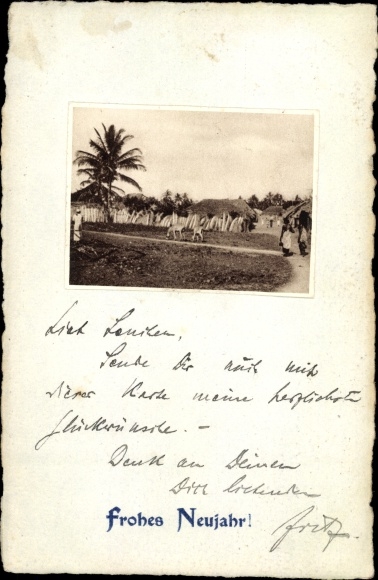 Lieb Lenchen,
Sende Dir auch mit
dieser Karte meine herzlichsten
Glückwünsche. –
Denk an Deinen
Dich liebenden
Fritz.
Frohes Neujahr!